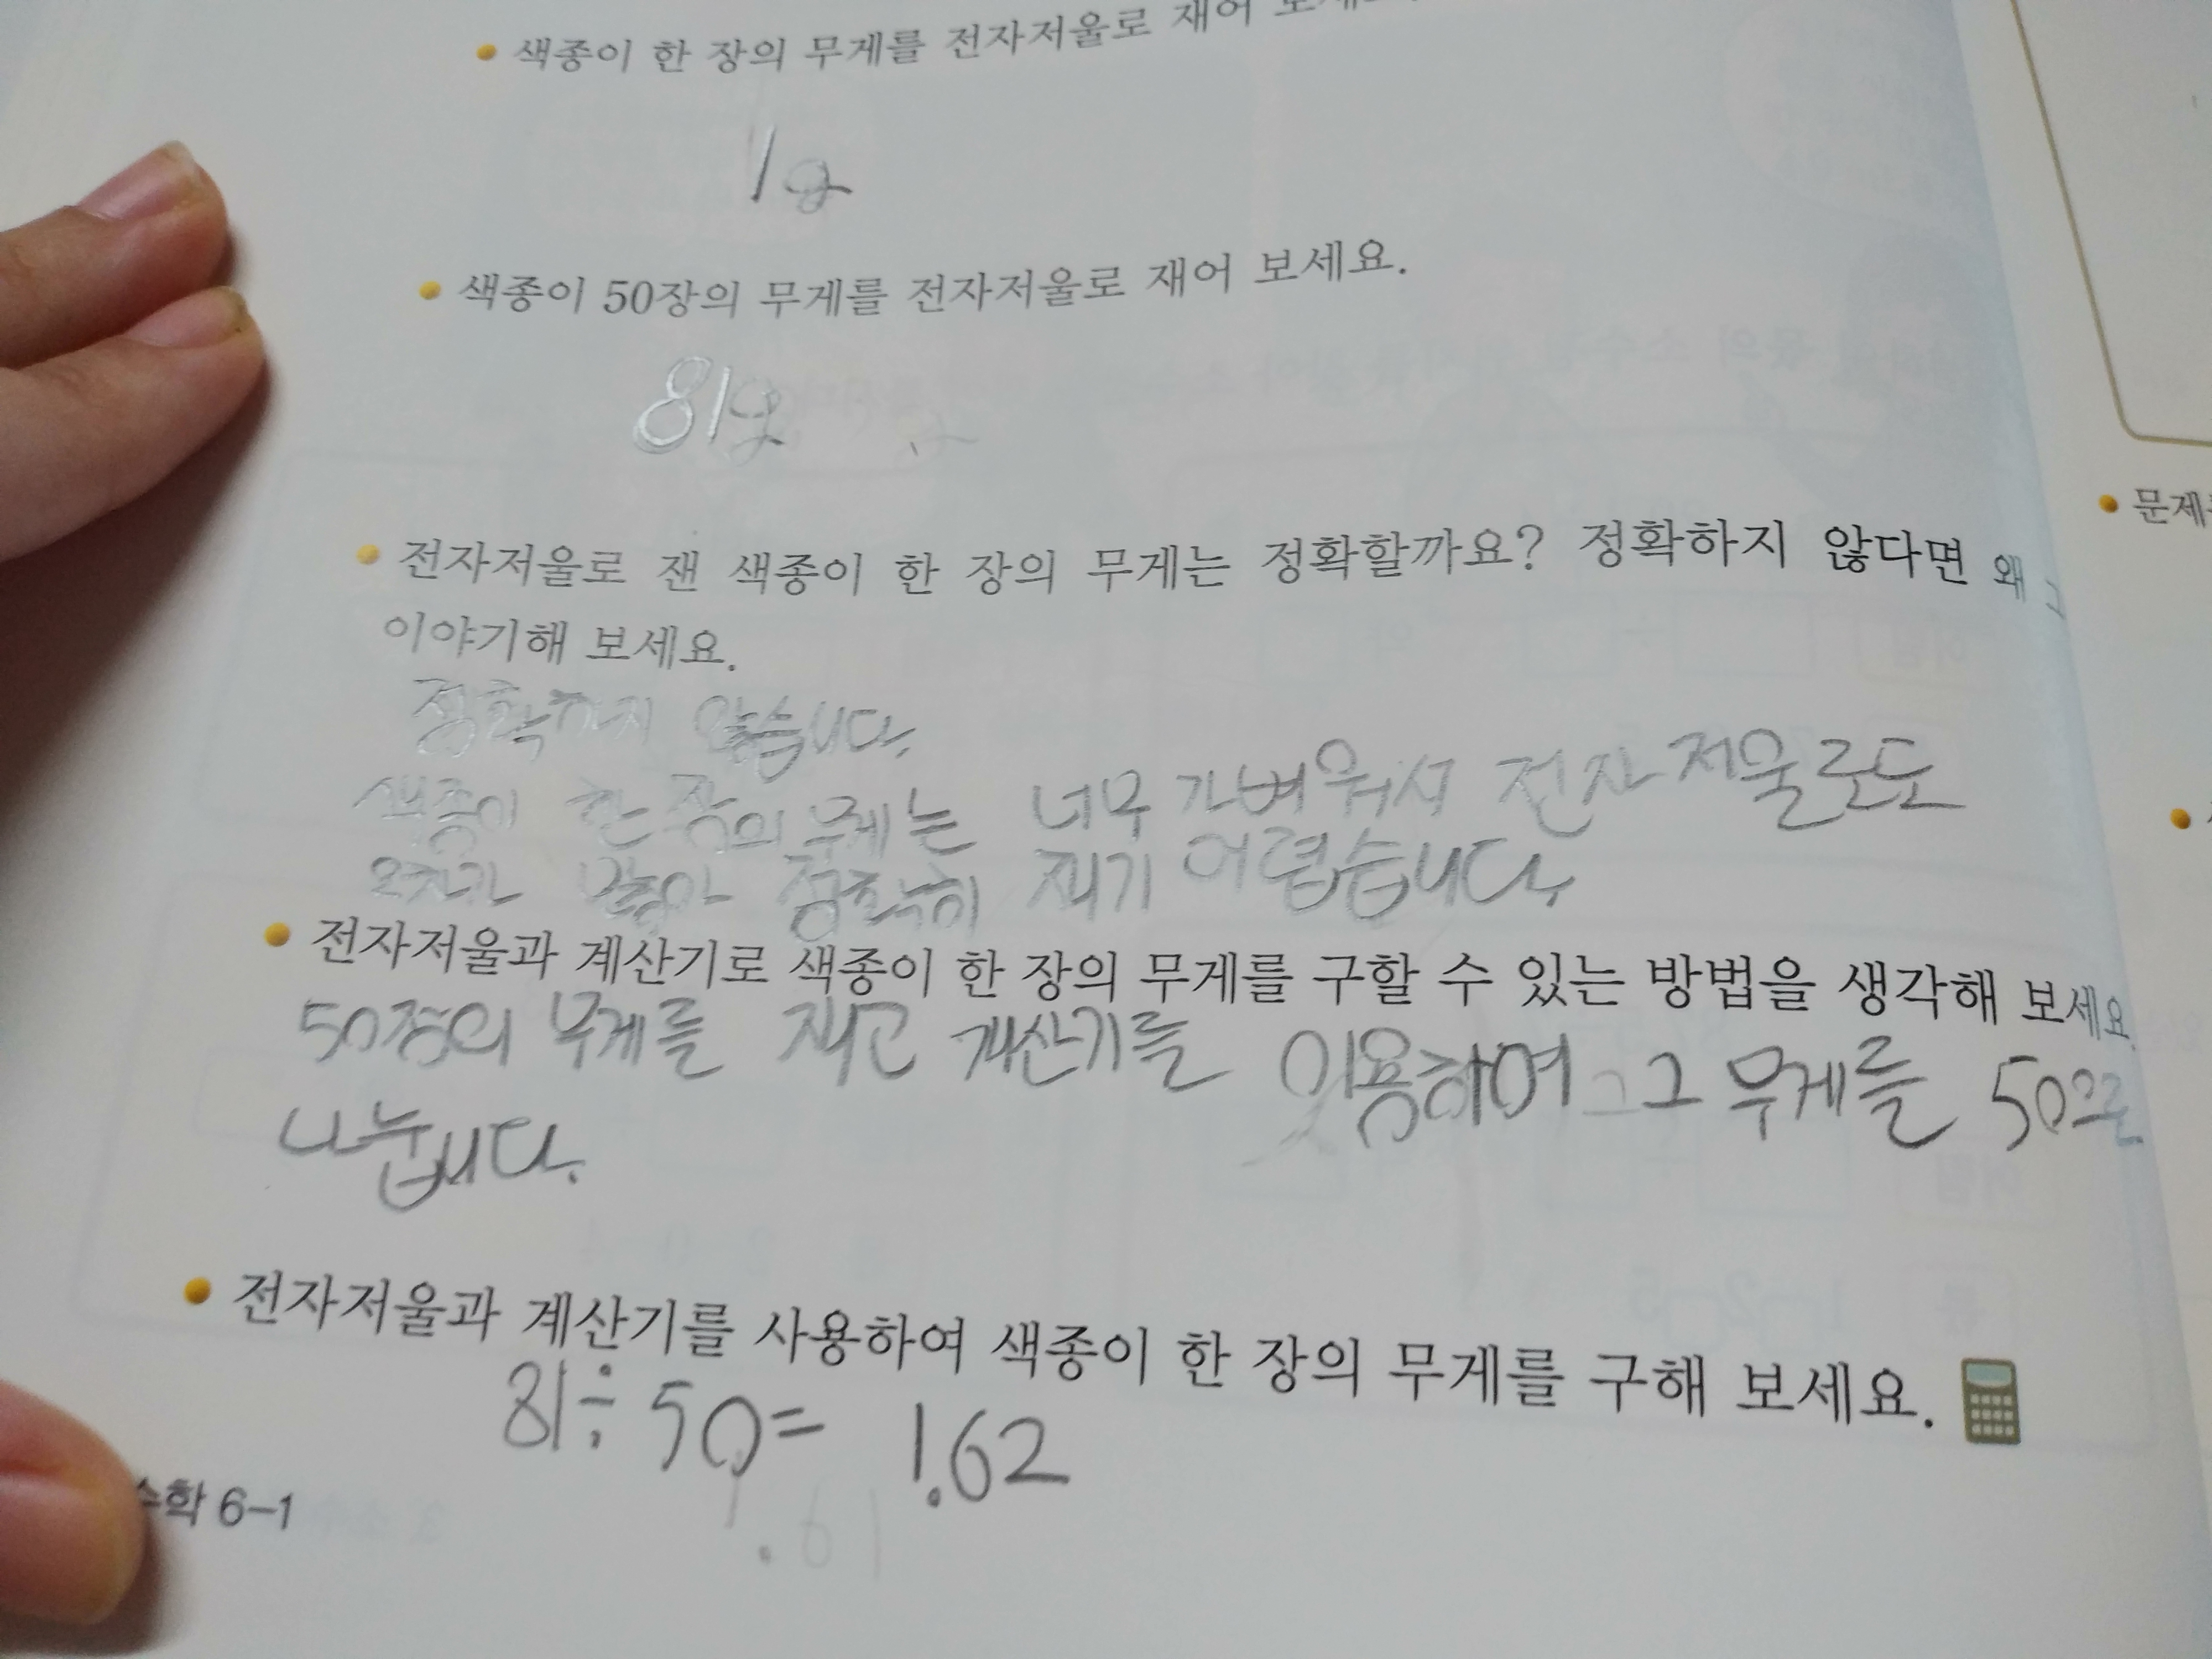 색종이 한 장의 무게를 전자저울로 재어
1g
색종이 50장의 무게를 전자저울로 재어 보세요.
81g
전자저울로 잰 색종이 한 장의 무게는 정확할까요? 정확하지 않다면 왜 그
이야기해 보세요.
정확하지 않습니다.
색종이 한 장의 무게는 너무 가벼워서 전자저울로도
오차가 많아 정확히 재기 어렵습니다.
전자저울과 계산기로 색종이 한 장의 무게를 구할 수 있는 방법을 생각해 보세요.
50장의 무게를 재고 계산기를 이용하여 그 무게를 50으로
나눕니다.
전자저울과 계산기를 사용하여 색종이 한 장의 무게를 구해 보세요.
81÷50= 1.62
수학 6-1
문제